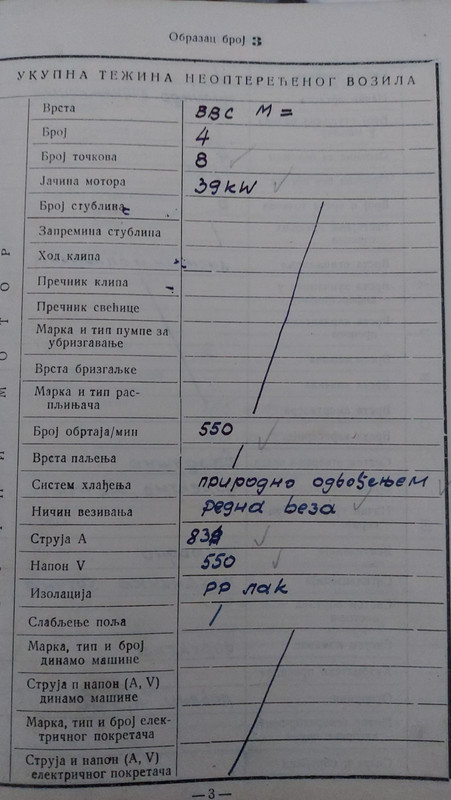 Образац број 3
УКУПНА ТЕЖИНА НЕОПТЕРЕЂЕНОГ ВОЗИЛА
Врста BBC M =
Број 4
Број точкова 8
Јачина мотора 39kW
Број стублина
Запремина стублина
Ход клипа
Пречник клипа
Пречник свећице
Марка и тип пумпе за
убризгавање
Врста бризгаљке
Марка и тип рас-
пљињача
Број обртаја/мин 550
Врста паљења /
Систем хлађења природно одвођењем
Ничин везивања редна веза
Струја А 83
Напон V 550
Изолација РР лак
Слабљење поља /
Марка, тип и број
динамо машине
Струја п напон (А, V)
динамо машине
Марка, тип и број елек-
тричног покретача
Струја и напон (А, V)
електричног покретача
—3—
М О Т О Р